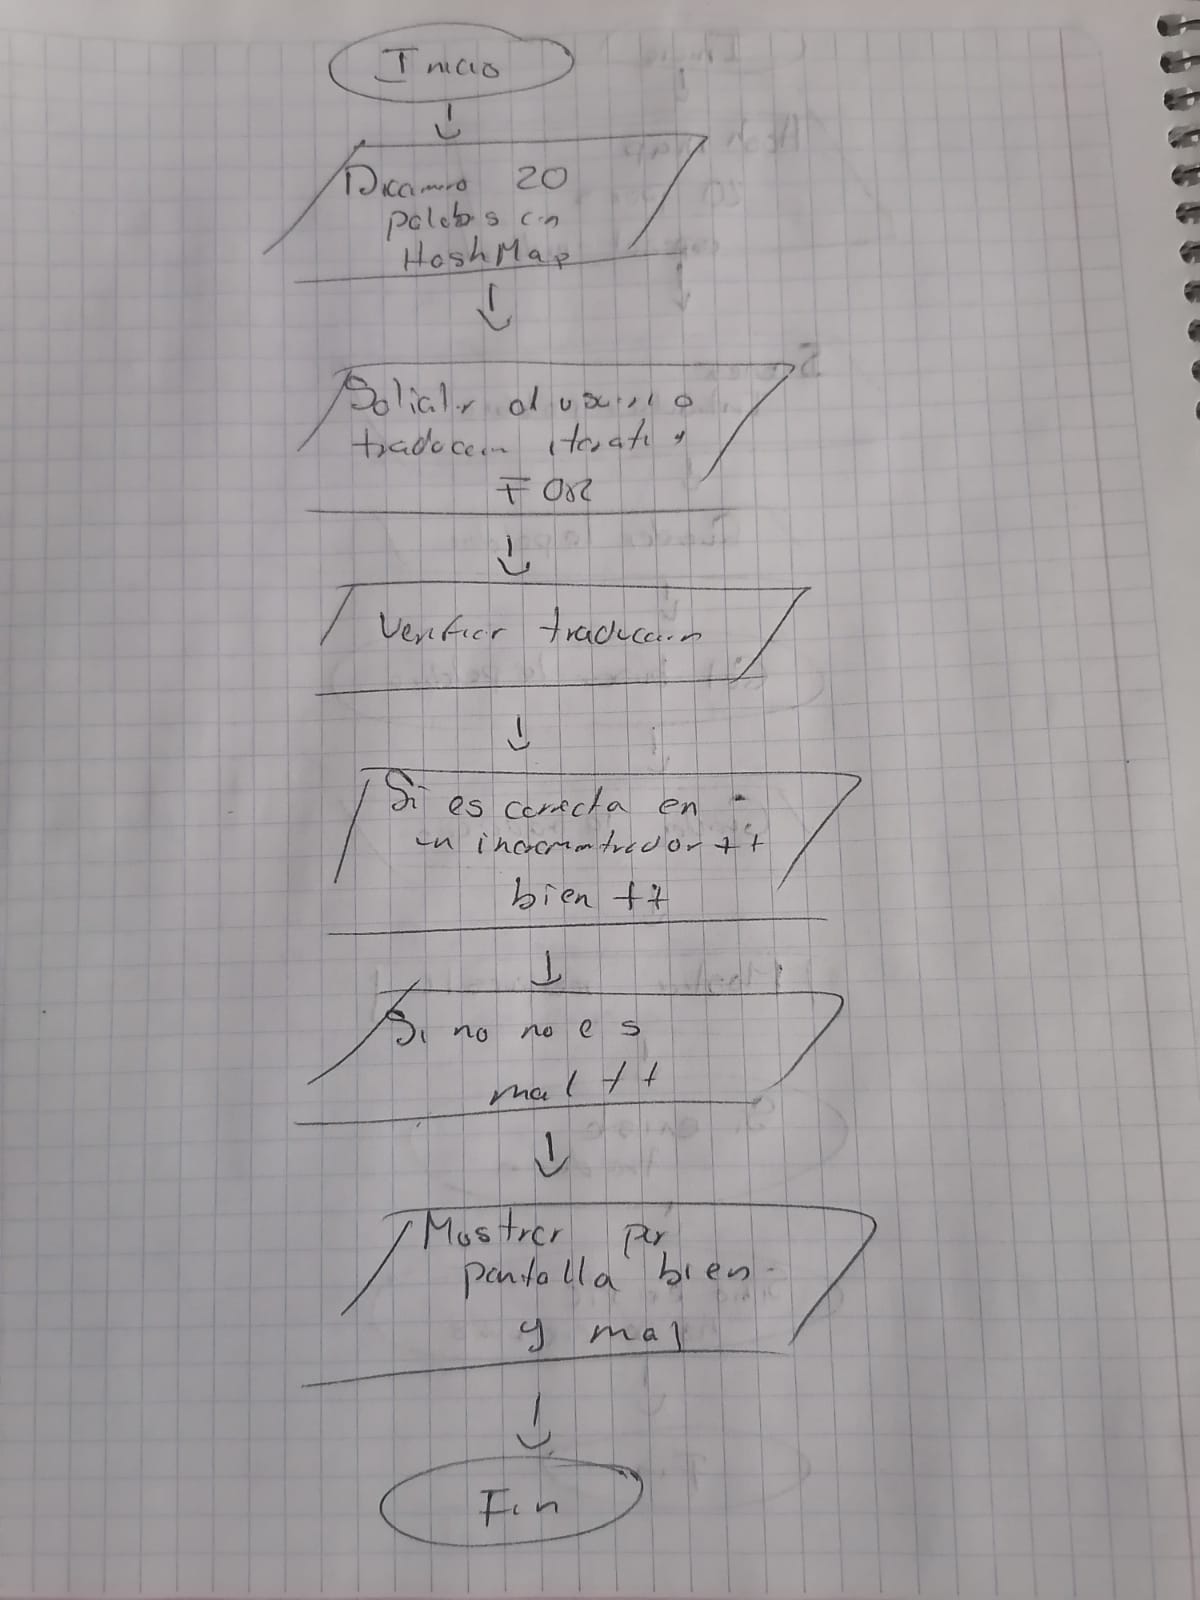 Inicio
Diccionario 20
palabras en
HashMap
Solicitar al usuario
traduccion iterati
FOR
Verificar traduccion
Si es correcta en
un incrementrador ++
bien ++
Si no no es
mal ++
Mostrar por
pantalla bien
y mal
Fin